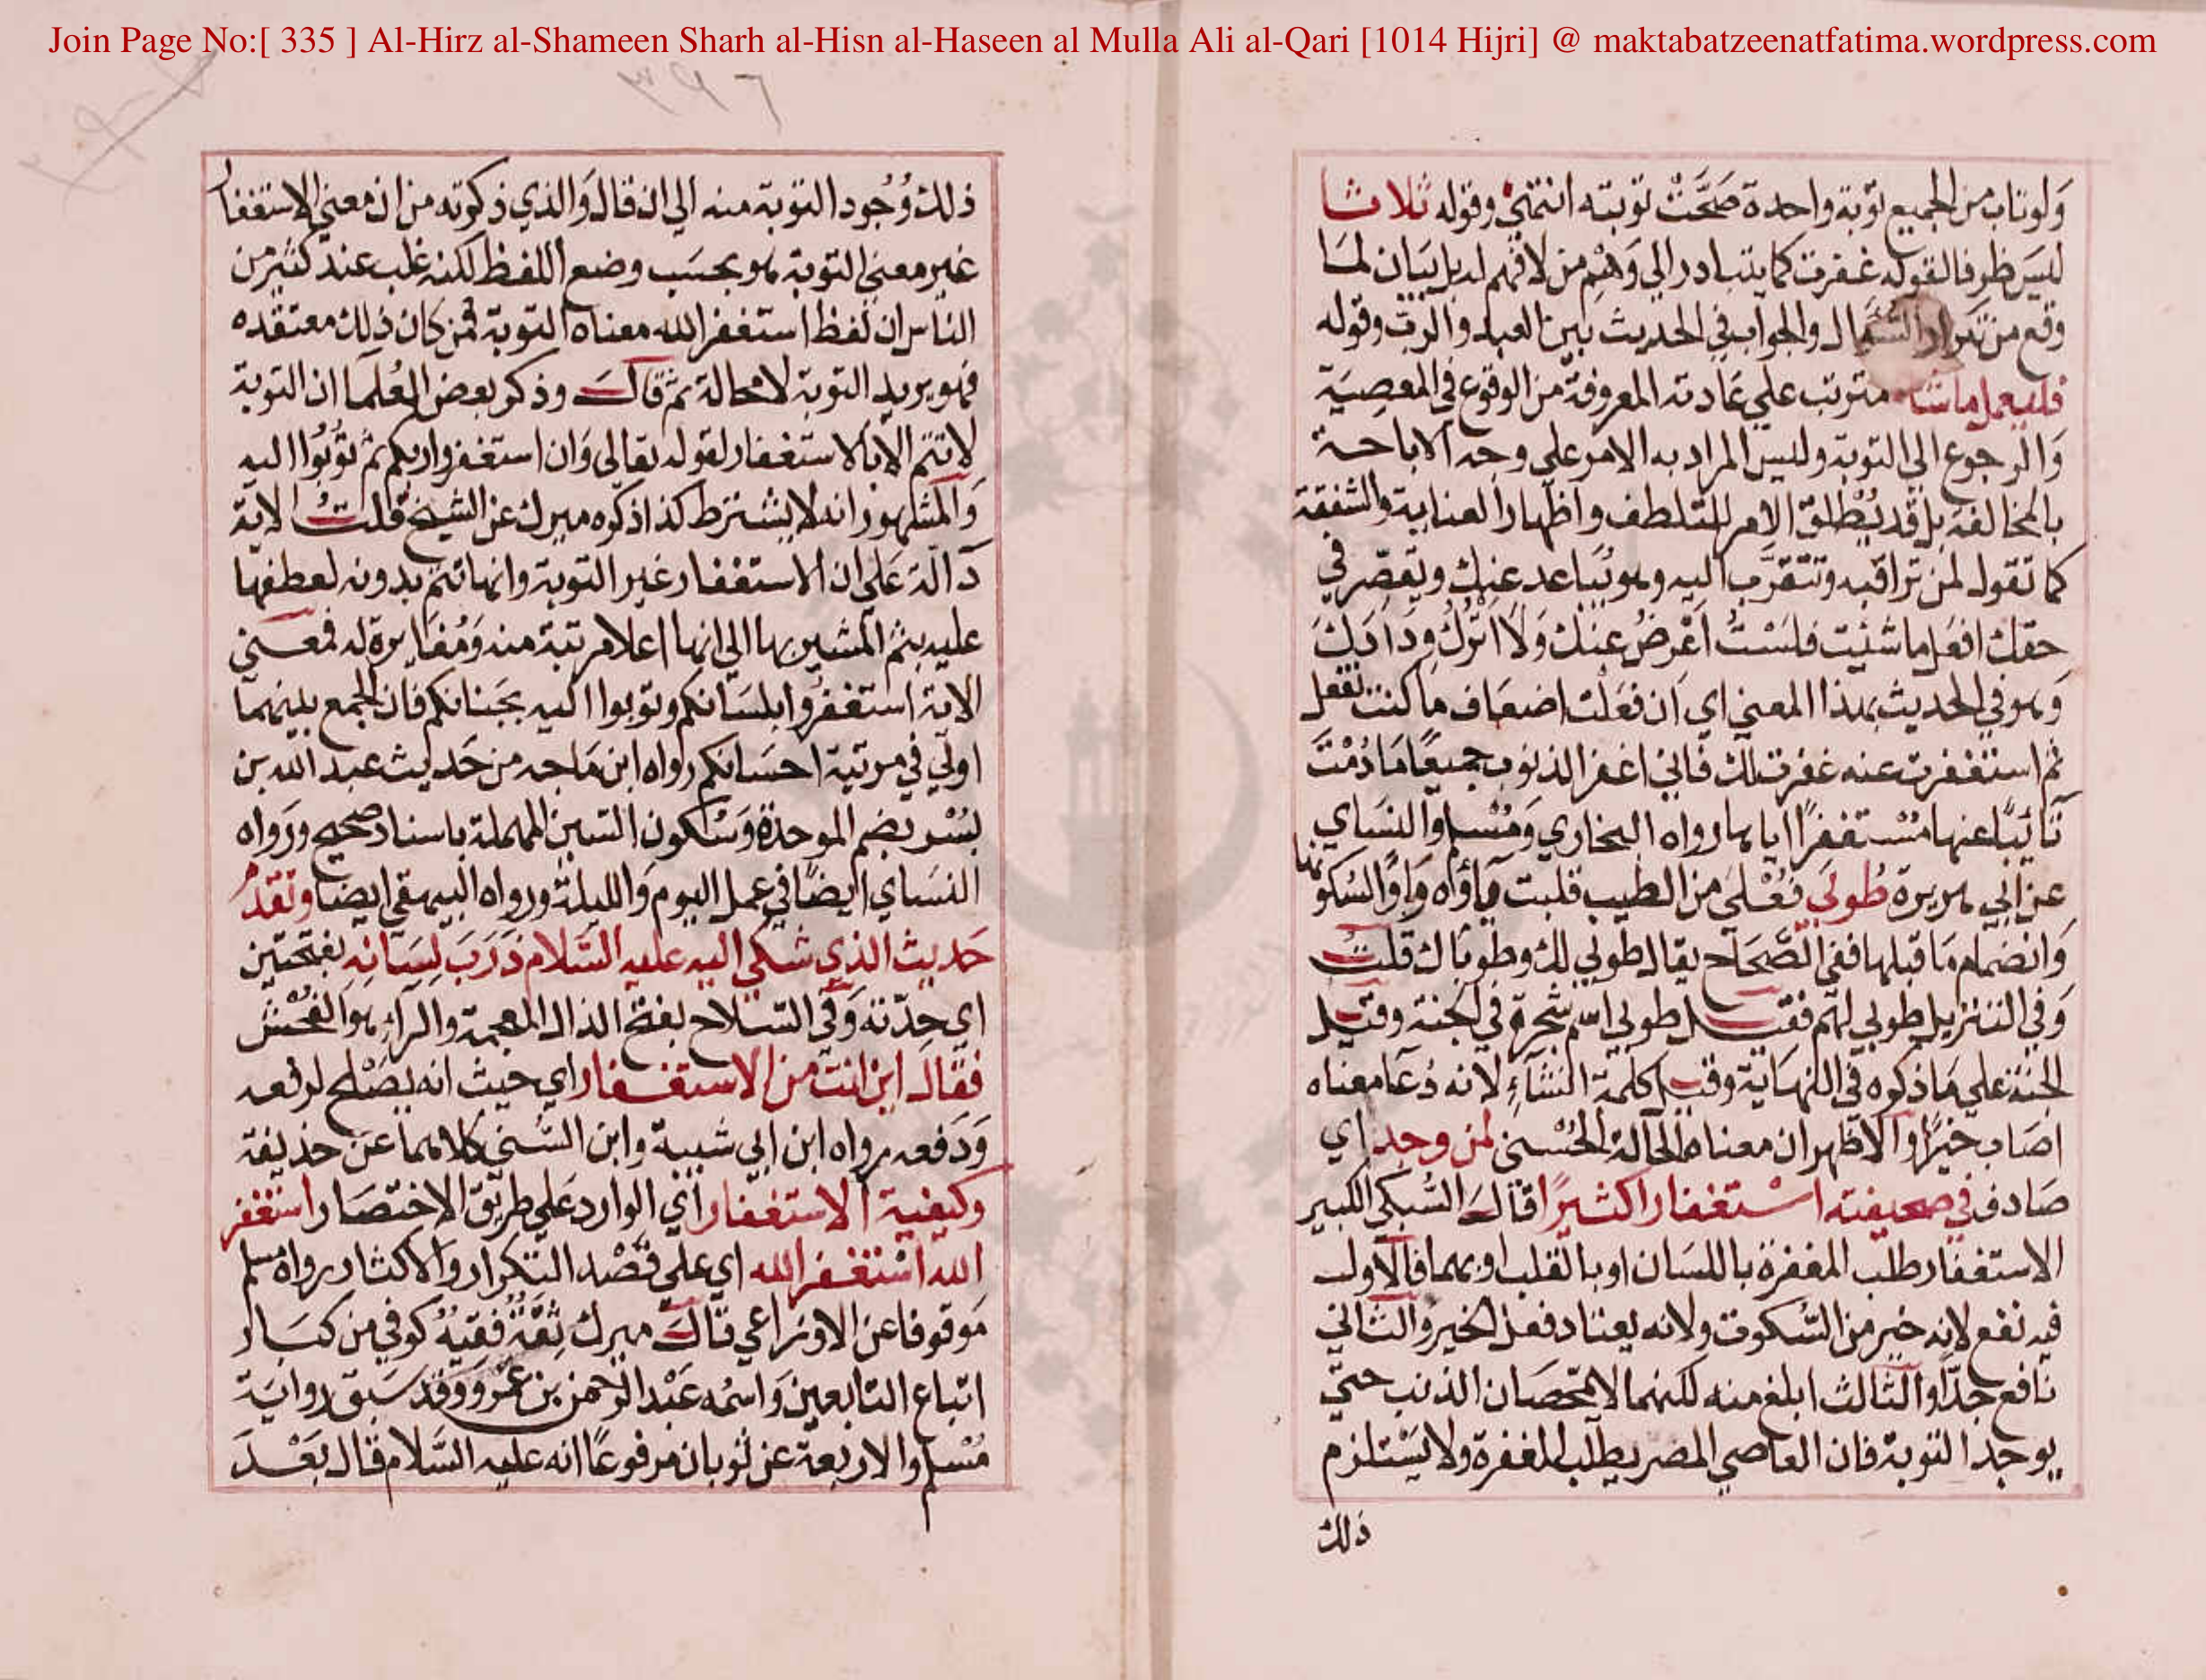 Join Page No:[ 335 ] Al-Hirz al-Shameen Sharh al-Hisn al-Haseen al Mulla Ali al-Qari [1014 Hijri] @ maktabatzeenatfatima.wordpress.com
ولو تاب من الجميع توبة واحدة صَحَّتْ توبته انتهى وقوله ثلاثا
ليسَ ظرفا لقوله غفرت كما يتبادر الي وَهْم من لا فهم له بل بيَان لمَا
وقع من تكرار السُّؤال والجواب في الحديث بين العبد والرب وقوله
فليعمل ما شاء مترتب علي عَادته المعروفة من الوقوع في المعصِيَة
وَالرجوع الي التوبة وليس المراد به الامر علي وجه الاباحة
بالمخالفة بل قد يُطلق الامر للتلطف واظهار العناية والشفقة
كما تقول لمن تراقبه وتتقرَّب اليه وهو يتباعد عنك ويقصّر في
حقك افعل ما شئت فلسْتُ اَعْرضُ عنك وَلَا اترُك ودَادَكَ
وَهو في الحديث بهذا المعني اي ان فعَلْت اضعَاف ما كنت تفعل
ثم استغفرت عنه غفرت لك فاني اغفر الذنوب جميعًا مَا دُمْتَ
تَائبًا عنها مُسْتغفرًا اياها رواه البخاري وَمُسْلم والنسَاي
عن ابي هريرة طُوبَي فُعْلي من الطيب قلبت ياؤه وَاوًا لسُكونها
وَانضمام مَا قبلها ففي الصَّحَاح يقال طوبي لك وطوباك قلت
وَفي التنزيل طوبي لهم فقيل طوبي اسم شجرة في الجنة وقيل
الجنة علي مَا ذكره في النهاية وقيل كلمة انشاءٍ لانه دُعَا معناه
اصَاب خيرًا والاظهر ان معناه الحالة الحُسْنى لمن وجد اي
صَادف في صحيفته اسْتغفارا كثيرًا قالَ السُّبكي الكبير
الاستغفار طلب المغفرة باللسَان او بالقلب او بهما فالاول
فيه نفع لانه خير من السُّكوت ولانه يعتاد فعل الخير والثاني
نَافع جدًّا والثالث ابلغ منه لكنهما لا يمحّصَان الذنب حتي
يوجد التوبة فان العاصي المصر يطلب المغفرة ولا يسْتلزم
ذلك
ذلك وُجود التوبة منه الي ان قال وَالذي ذكرته من ان معني الاستغفار
غير معني التوبة هو بحسَب وضع اللفظ لكنه غلب عند كثير من
الناس ان لفظ استغفر الله معناه التوبة فمن كان ذلك معتقده
فهو يريد التوبة لا محالة ثم قالَ وذكر بعض العُلمَا ان التوبة
لا تتم الا بالاستغفار لقوله تعالي وَان استغفروا ربكم ثم توُبُوا اليه
وَالمشهور انه لا يشترط كذا ذكره ميرك عن الشيخ قلتُ الاية
دَالّة عَلي ان الاستغفار غير التوبة وانها تتم بدونه لعطفها
عليه بثم المشير بها الي انها اعلا مرتبة منه وَمُغَايرة له فمعني
الاية استغفرُوا بلسَانكم وتوبوا اليه بجَنانكم فان الجمع بينهما
اولي في مرتبة احسَانكم رواه ابن مَاجه من حَديث عبد الله بن
بُسْر بضم الموحدة وَسُكون السّين المهملة باسناد صحيح ورَواه
النسَاي ايضًا في عمل اليوم وَالليلة ورواه البيهقي ايضا وتقدَّم
حَديث الذي شكي اليه عليه السَّلام ذَرَبَ لِسَانِه بفتحتين
اي حِدّته وَفي السّلاح بفتح الذال المعجمة والراءِ هوَ الفُحْش
فقال اين انت من الاستغفار اي حيث انه يصْلح لرفعه
وَدَفعه رواه ابن ابي شيبة وابن السُّني كلاهما عَن حذيفة
وكيفية الاستغفار اي الوارد عَلي طريق الاختصَار استغفر
الله اسْتغفر الله اي علي قصْد التكرار والاكثار رواه مسلم
مَوقوفا عن الاوزاعي قالَ ميرك ثِقَةٌ فقيهٌ كوفي من كبَار
اتباع التابعين وَاسمُه عَبْد الرحمن بن عمْرو وقد سَبق رواية
مُسْلم والاربعة عن ثوبان مرفوعًا انه عليه السَّلام قال بَعْدَ